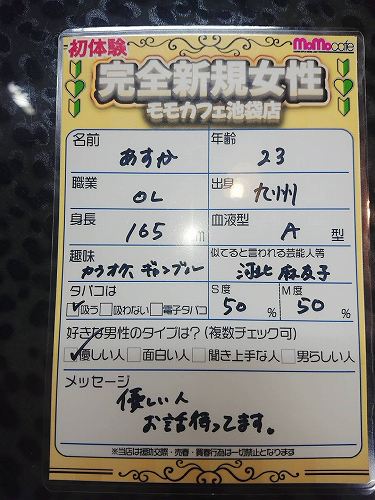 初体験
MoMocafe
完全新規女性
モモカフェ池袋店
名前 あすか 年齢 23
職業 OL 出身 九州
身長 165 cm 血液型 A 型
趣味 カラオケ ギャンブル 似てると言われる芸能人等 河北麻友子
タバコは S度 M度
✓吸う □吸わない □電子タバコ 50 % 50 %
好きな男性のタイプは?(複数チェック可)
✓優しい人 □面白い人 □聞き上手な人 □男らしい人
メッセージ
優しい人
お話待ってます。
※当店は援助交際・売春・買春行為は一切禁止となります